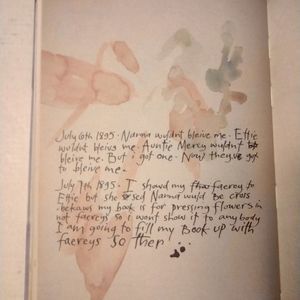 July 6th 1895. Nanna wuldnt bleive me. Ettie
wuldnt bleive me. Auntie Mercy wuldnt
bleive me. But i got one. Now theyve got
to bleive me.
July 7th 1895. I showd my faerey to
Ettie but she sed Nanna wuld be cross
becaws my book is for pressing flowers in
not faereys so i wont show it to anybody
I am going to fill my Book up with
faereys So then